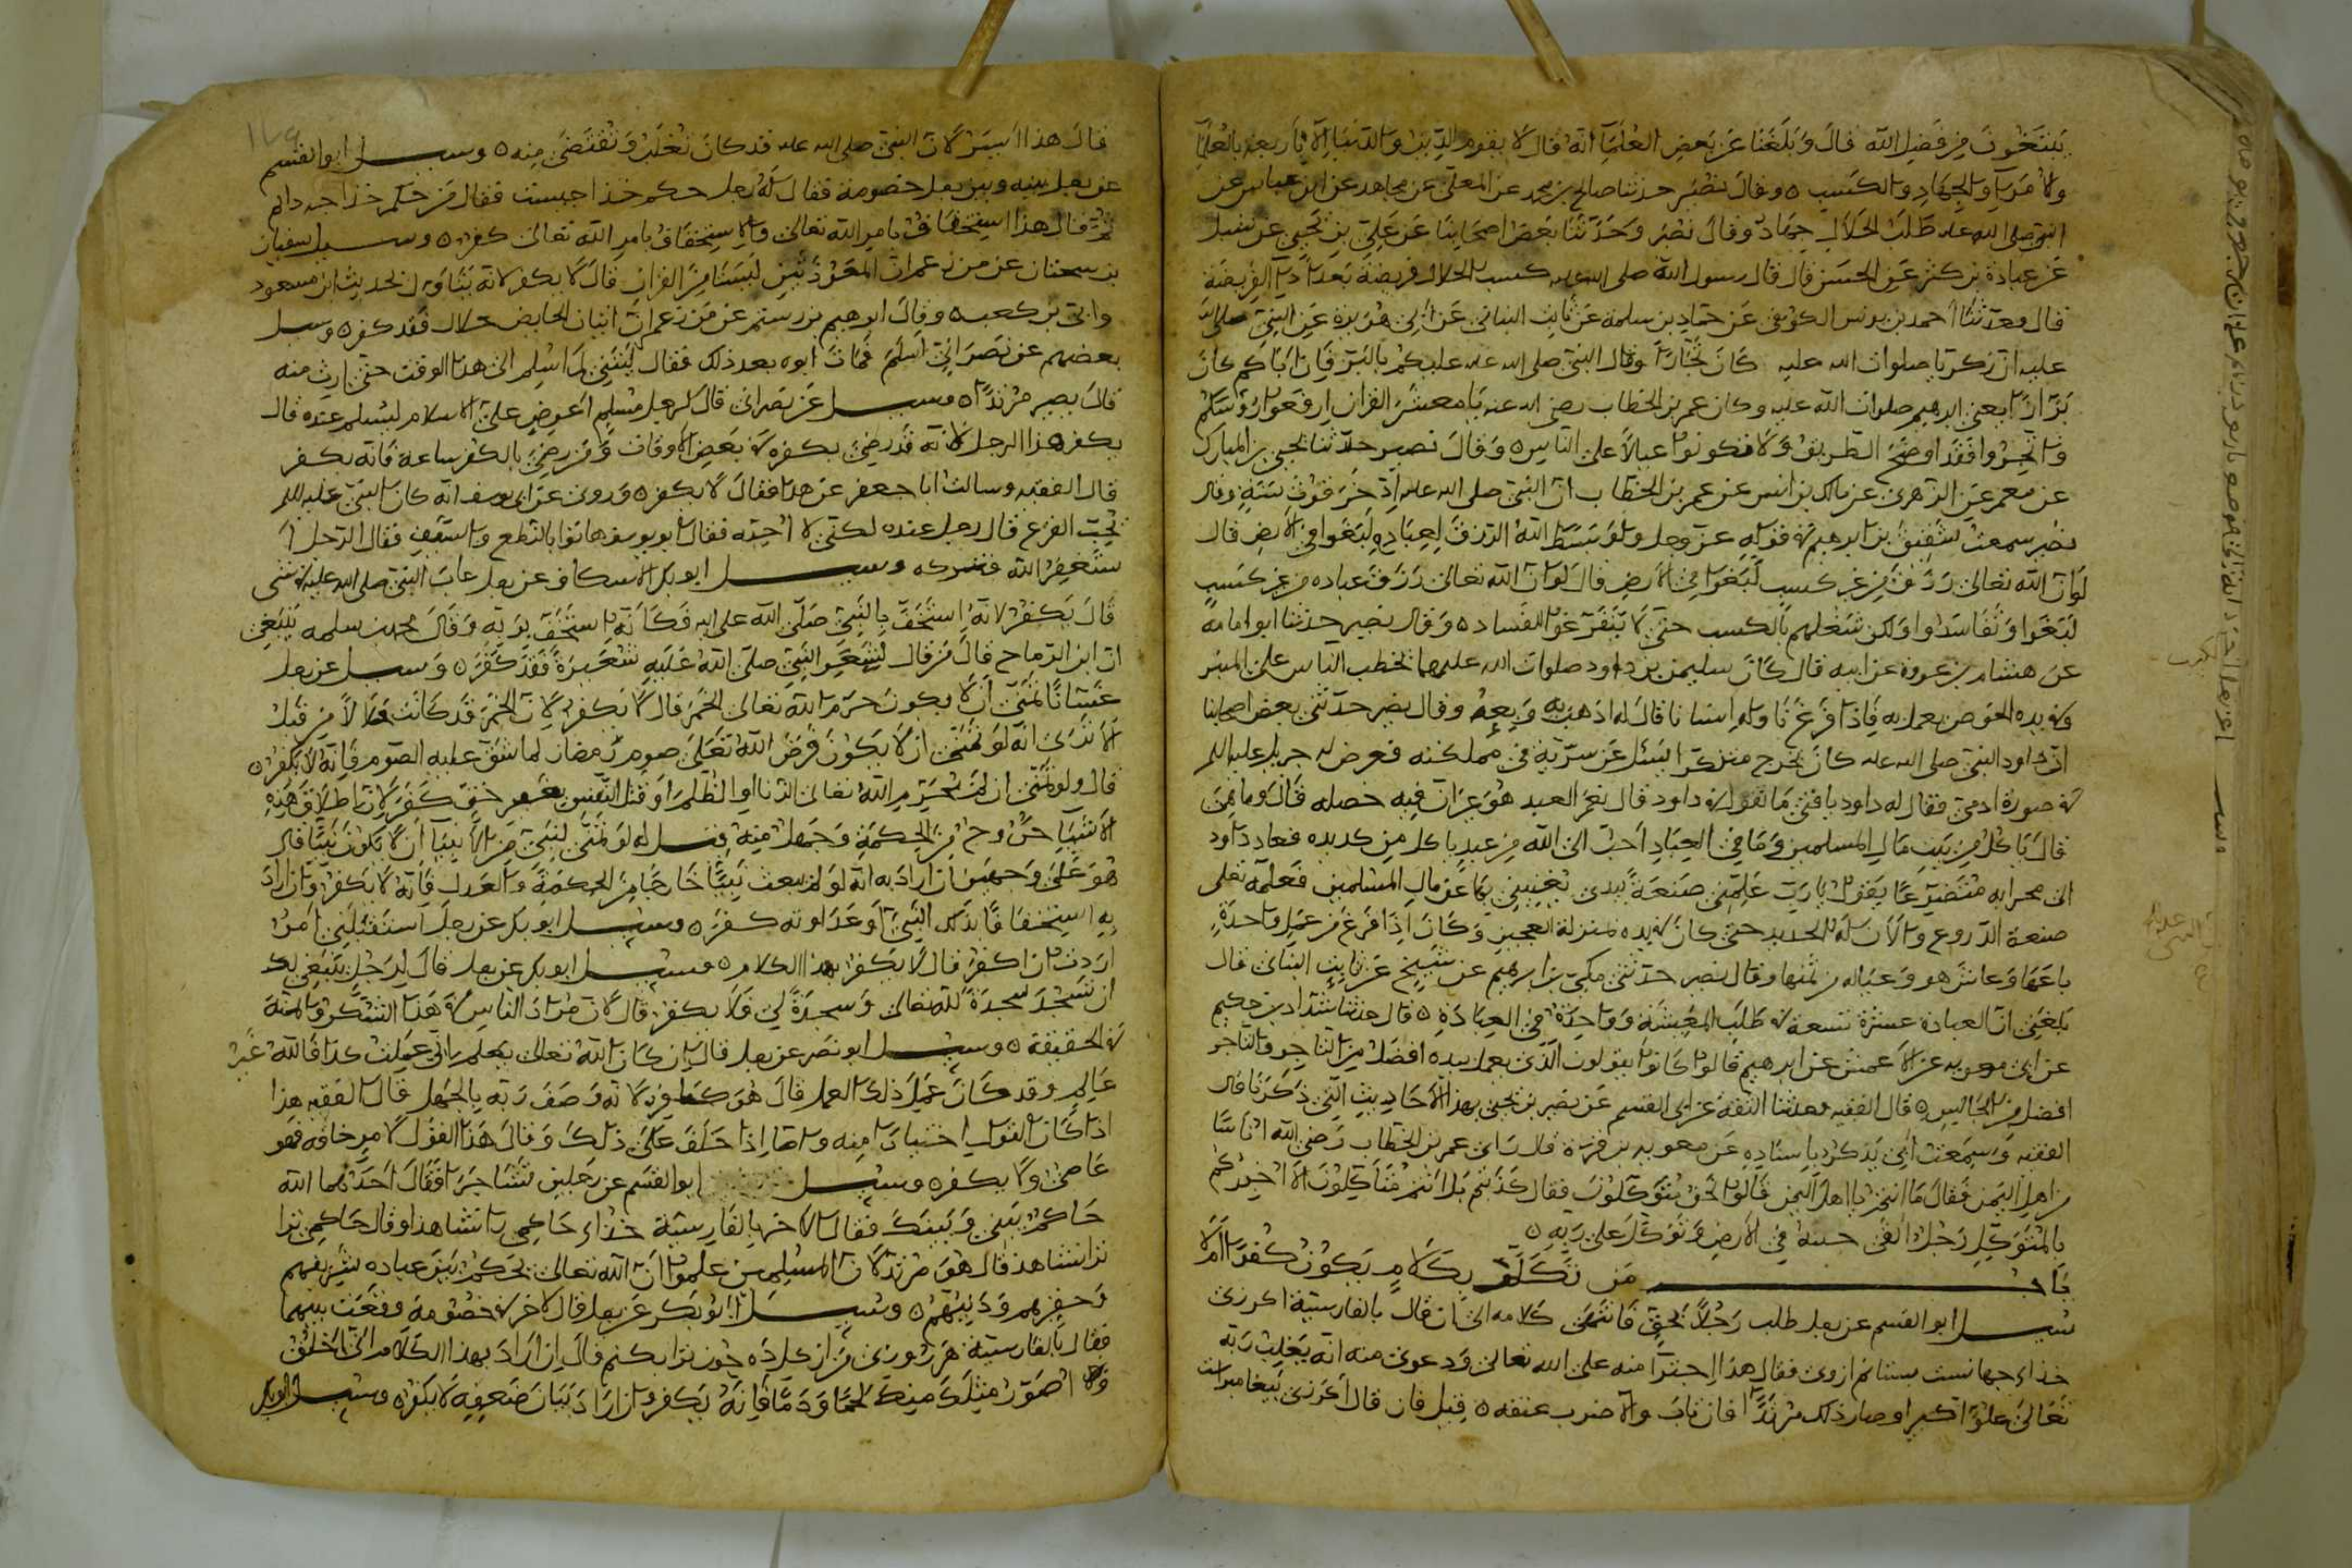 يبتغون من فضل الله قال وبلغنا عن بعض العلماء انه قال لا يقوم الدين والدنيا الا باربعة بالعلماء
والامراء والجهاد والكسب ٥ وقال نصير حدثنا صالح بن محمد عن المعلى عن مجاهد عن ابن عباس عن
النبي صلى الله عليه طلب الحلال جهاد وقال نصير وحدثنا بعض اصحابنا عن علي بن يحيى عن
عن عبادة بن كثير عن الحسن قال قال رسول الله صلى الله عليه كسب الحلال فريضة بعد اداء الفريضة
قال وحدثنا احمد بن يونس الكوفي عن حماد بن سلمة عن ثابت البناني عن ابي هريرة عن النبي صلى الله
عليه ان زكريا صلوات الله عليه كان نجارا وقال النبي صلى الله عليه عليكم بالبز فان اباكم كان
بزازا يعني ابرهيم صلوات الله عليه وكان عمر بن الخطاب رضي الله عنه يا معشر القران ارفعوا رؤسكم
واتجروا فقد اوضح الطريق ولا تكونوا عيالا على الناس ٥ وقال نصير حدثنا يحيى بن المبارك
عن معمر عن الزهري عن مالك بن انس عن عمر بن الخطاب ان النبي صلى الله عليه ادخر قوت سنة وقال
نصير سمعت شقيق بن ابرهيم في قوله عز وجل ولو بسط الله الرزق لعباده لبغوا في الارض قال
لو ان الله تعالى رزق من غير كسب لبغوا في الارض قال لو ان الله تعالى رزق عباده من غير كسب
لبغوا وتفاسدوا ولكن شغلهم بالكسب حتى لا يتفرغوا للفساد ٥ وقال نصير حدثنا ابو امامة
عن هشام بن عروة عن ابيه قال كان سليمن بن داود صلوات الله عليهما يخطب الناس على المنبر
وفي يده الخوص يعمل به فاذا فرغ ناوله انسانا قال له اذهب به وبعه وقال نصير حدثني بعض اصحابنا
ان داود النبي صلى الله عليه كان يخرج متنكرا يسئل عن سيرته في مملكته فعرض له جبريل عليه السلم
في صورة ادمي فقال له داود يا فتى ما تقول في داود قال نعم العبد هو غير ان فيه خصلة قال وما هي
قال ياكل من بيت مال المسلمين وما في العباد احب الى الله من عبد ياكل من كد يده فعاد داود
الى محرابه متضرعا يقول يا رب علمني صنعة بيدي تغنيني بها عن مال المسلمين فعلمه تعالى
صنعة الدروع والان له الحديد حتى كان في يده بمنزلة العجين وكان اذا فرغ من عمل واحدة
باعها وعاش هو وعياله من ثمنها وقال نصير حدثني مكي بن ابرهيم عن شيخ عن ثابت البناني قال
بلغني ان العبادة عشرة تسعة في طلب المعيشة وواحدة في العبادة ٥ قال حدثنا شداد بن حكيم
عن ابي معوية عن الاعمش عن ابرهيم قالوا كانوا يقولون الذي يعمل بيده افضل من التاجر والتاجر
افضل من الجالس ٥ قال الفقيه وحدثنا الثقة عن ابي القسم عن نصير بن يحيى بهذه الاحاديث التي ذكرنا قال
الفقيه وسمعت ابي يذكر باسناده عن معوية بن قرة قال راى عمر بن الخطاب رضي الله اناسا
من اهل اليمن فقال ما انتم يا اهل اليمن قالوا نحن متوكلون فقال كذبتم بل انتم متاكلون الا اخبركم
بالمتوكل رجل القى حبه في الارض وتوكل على ربه ٥
باب من تكلم بكلام يكون كفرا ام لا
سئل ابو القسم عن رجل طلب رجلا بحق فانتهى كلامه الى ان قال بالفارسية اكر زي
خذاء جهانست بستانم ازوي فقال هذا اجترا منه على الله تعالى ودعوى منه انه يغلب ربه
تعالى علوا كبيرا وصار ذلك مرتدا فان تاب والا ضرب عنقه ٥ قيل فان قال اكر زي بيغامبرانت
قال هذا ايسر لان النبي صلى الله عليه قد كان يغلب ويقتضى منه ٥ وسئل ابو القسم
عن رجل بينه وبين رجل خصومة فقال له رجل حكم خذا جيست فقال من حكم خذا جه دانم
فقال هذا استخفاف بامر الله تعالى والاستخفاف بامر الله تعالى كفر ٥ وسئل سفيان
بن سحتان عن من زعم ان المعوذتين ليستا من القران قال لا يكفر لانه يتاول بحديث ابن مسعود
وابي بن كعب ٥ وقال ابرهيم بن رستم عن من زعم ان اتيان الحايض حلال فقد كفر ٥ وسئل
بعضهم عن نصراني اسلم فمات ابوه بعد ذلك فقال ليتني لم اسلم الى هذا الوقت حتى ارث منه
قال يصير مرتدا ٥ وسئل عن نصراني قال لرجل مسلم اعرض علي الاسلام لاسلم عنده قال
يكفر هذا الرجل لانه قد رضي بكفره في بعض الاوقات ومن رضي بالكفر ساعة فانه يكفر
قال الفقيه وسالت ابا جعفر عن هذا فقال لا يكفر ٥ وروي عن ابي يوسف انه كان النبي عليه السلم
يحب القرع قال رجل عنده لكني لا احبه فقال ابو يوسف هاتوا بالنطع والسيف فقال الرجل ا
ستغفر الله فتركه وسئل ابو بكر الاسكاف عن رجل عاب النبي صلى الله عليه في شي
قال يكفر لانه استخف بالنبي صلى الله عليه فكانه استخف بربه وقال محمد بن سلمه ينبغي
ان ابن الرماح قال من قال لشعر النبي صلى الله عليه شعيرة فقد كفر ٥ وسئل عن رجل
تمنى ان لا يكون حرم الله تعالى الخمر قال لا يكفر لان الخمر قد كانت حلالا من قبل
الا ترى انه لو تمنى ان لا يكون فرض الله تعالى صوم رمضان لما شق عليه الصوم فانه لا يكفر ٥
قال ولو تمنى ان لم يحرم الله تعالى الزنا او الظلم او قتل النفس بغير حق كفر لان اطلاق هذه
الاشيا خروج من الحكمة وجهل منه قيل له لو تمنى لنبي من الانبيا ان لا يكون نبيا قال
هو على وجهين ان اراد به انه لو لم يبعث نبيا خارجا من الحكمة والعدل فانه لا يكفر وان اراد
به استخفافا بذلك النبي او عداوته كفر ٥ وسئل ابو بكر عن رجل استقبلني امر
اردت ان اكفر قال لا يكفر بهذا الكلام ٥ وسئل ابو بكر عن رجل قال لرجل ينبغي لك
ان تسجد سجدة لله تعالى وسجدة لي فلا يكفر قال لان مراد الناس في هذا الشكر والمنة
في الحقيقة ٥ وسئل ابو نصر عن رجل قال ان كان الله تعالى يعلم اني عملت كذا فالله غير
عالم وقد كان عمل ذلك العمل قال هو كفر لانه وصف ربه بالجهل قال الفقيه هذا
اذا كان القول اختيارا منه واما اذا حلف على ذلك وقال هذا القول لامر خافه فهو
عاصي ولا يكفر ٥ وسئل ابو القسم عن رجلين تشاجرا فقال احدهما الله
حاكم بيني وبينك فقال الاخر بالفارسية خذاء حاكمي را نشاهد او قال حاكمي ترا
نشاهد قال هو مرتد لان المسلمين علموا ان الله تعالى يحكم بين عباده شريفهم
وحقيرهم ودنيهم ٥ وسئل ابو بكر عن رجل قال لاخر في خصومة وقعت بينهما
فقال بالفارسية هر روزي من از كل ده جون ترا بكنم قال ان اراد بهذا الكلام اني اخلق
واصور مثلك منك لحما ودما فانه يكفر وان اراد بيان ضعفه لا يكفر ٥ وسئل ابو بكر